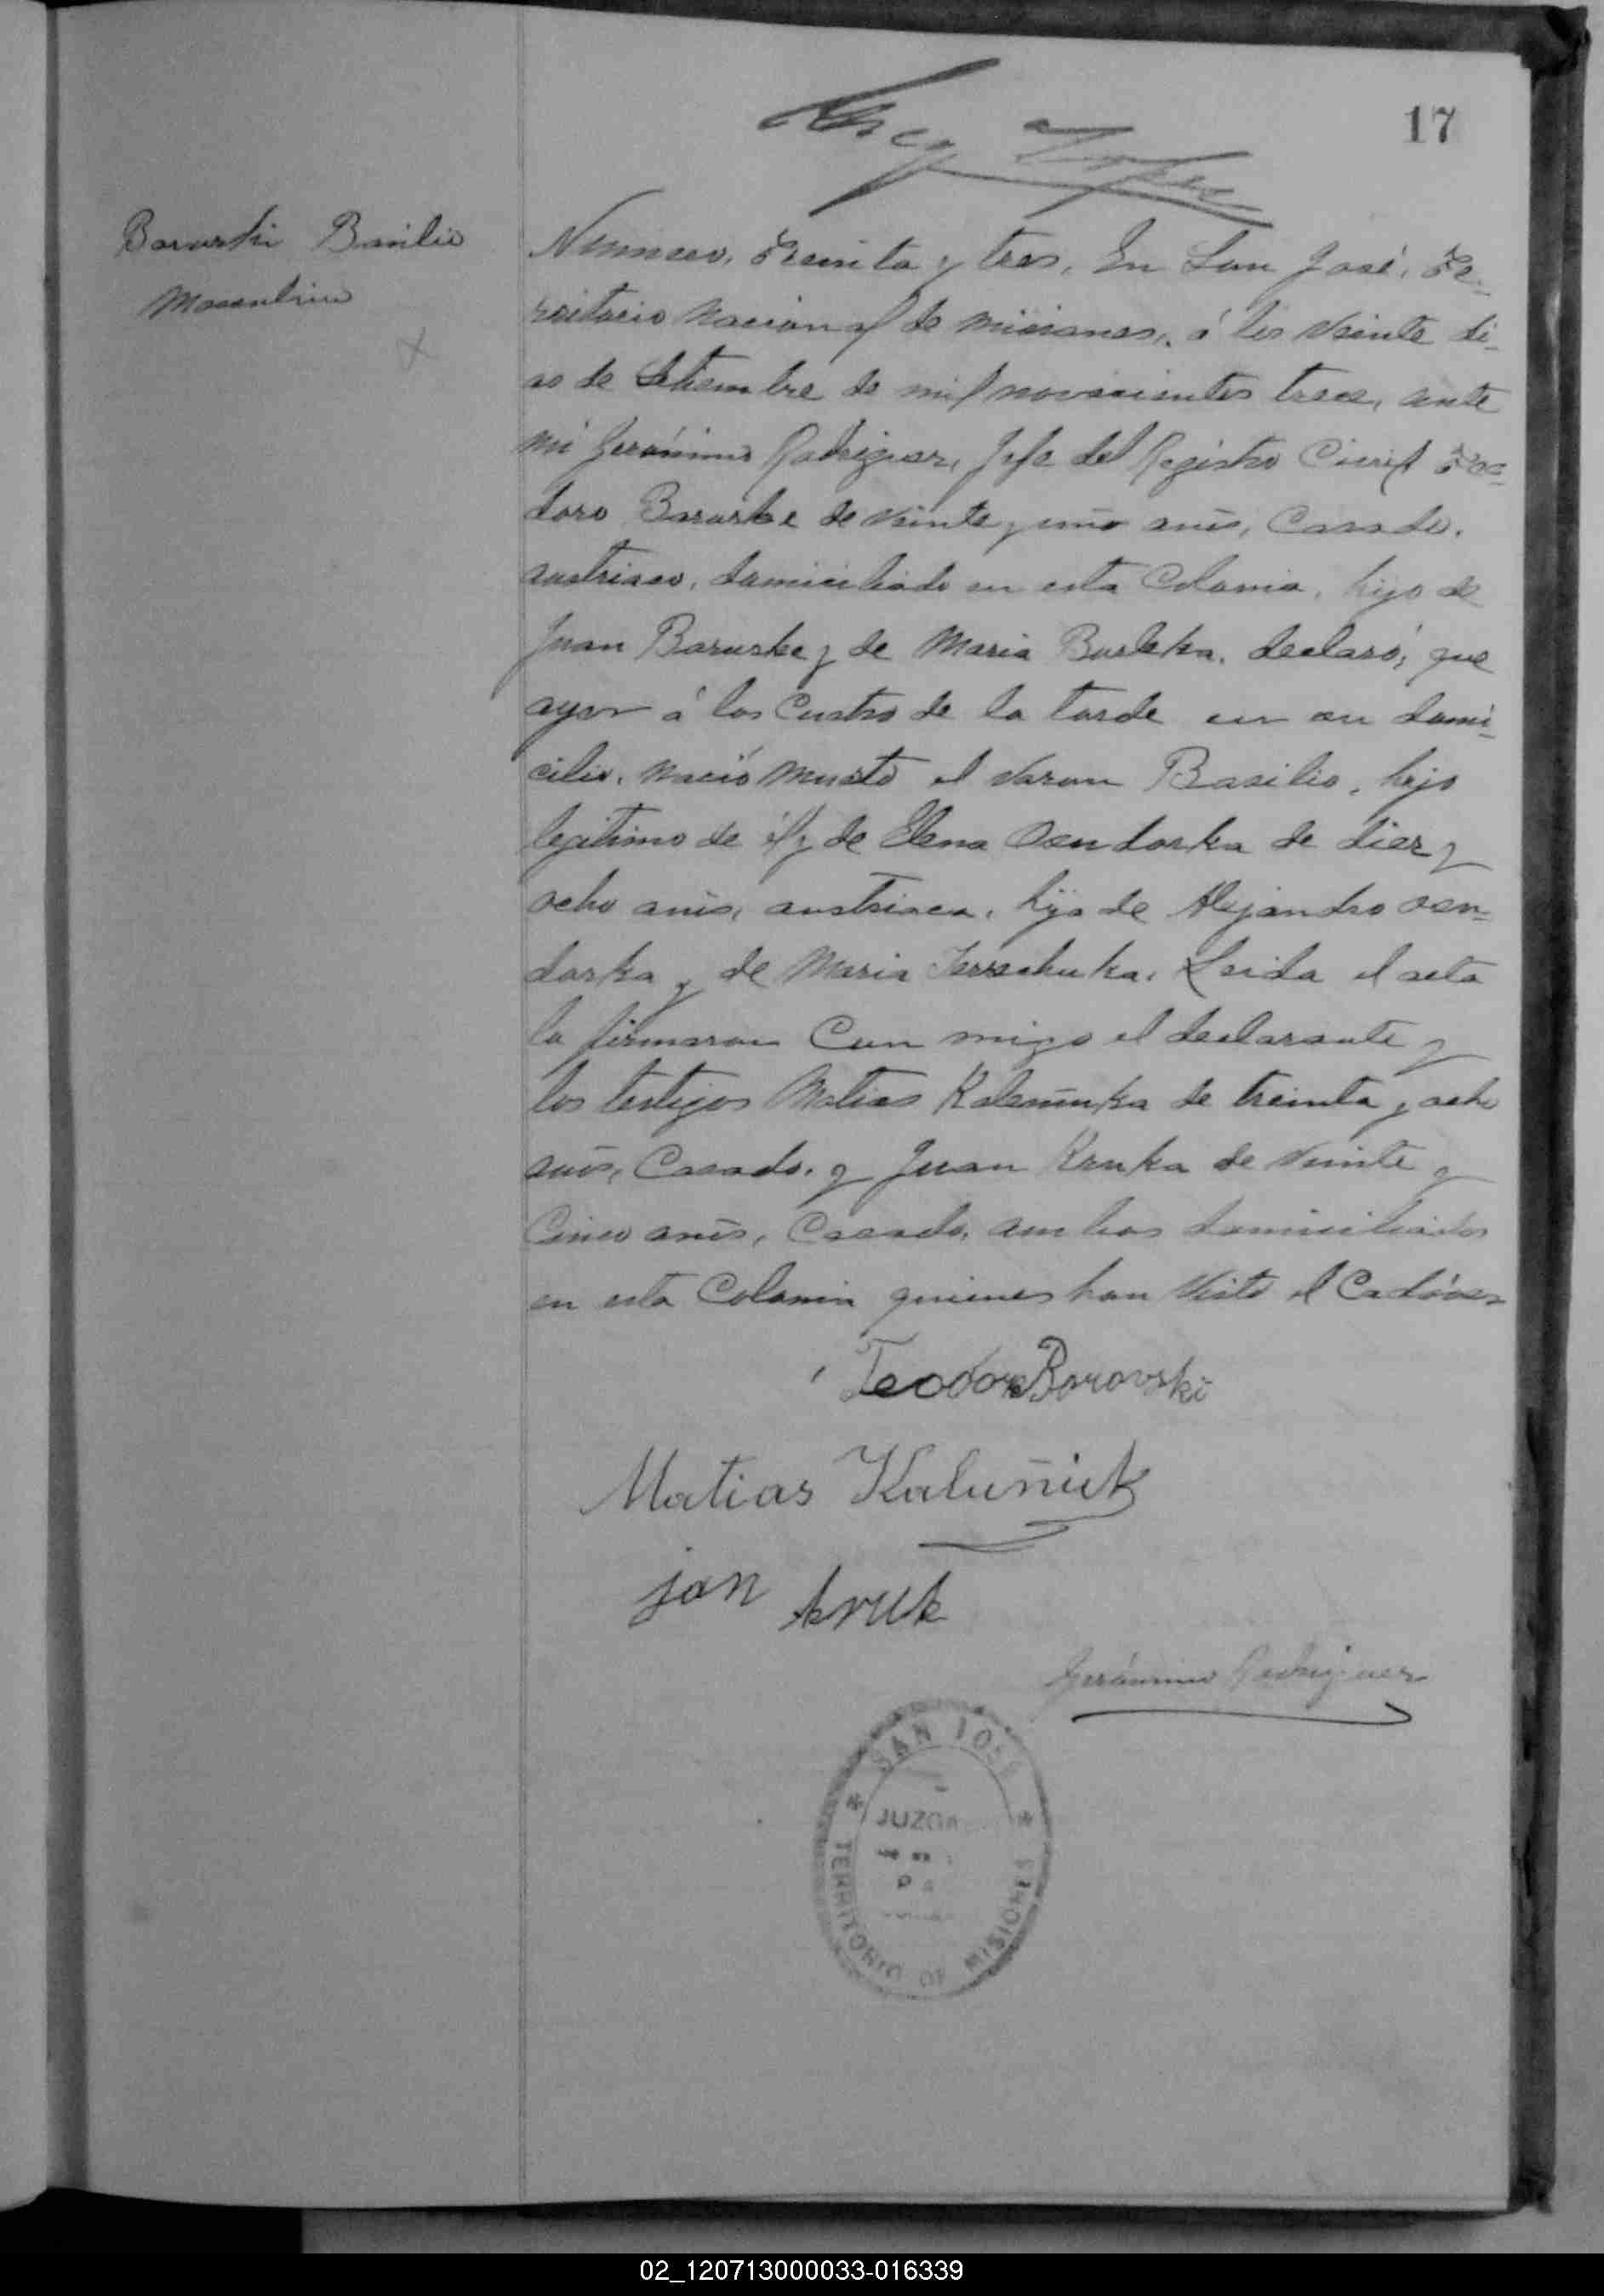 17
Barurki Basilio
Masculino
Numero, Treinta y tres, En San José, Te-
rritorio Nacional de Misiones, á los veinte di-
as de Setiembre de mil novecientos trece, ante
mi Gerónimo Rodriguez, Jefe del Registro Civil Teo-
doro Baruske de veinte y uno años, Casado.
austriaco, domiciliado en esta Colonia, hijo de
Juan Baruske y de Maria Burleka. declaró; que
ayer á las Cuatro de la tarde en su domi-
cilio. nació muerto el varon Basilio, hijo
legitimo de él y de Elena Osendorka de diez y
ocho años, austriaca, hija de Alejandro Osen-
dorka y de Maria . Leida el acta
la firmaron Con migo el declarante y
los testigos Matias Kaleniuka de treinta y ocho
años, Casado. y Juan Kruka de veinte y
Cinco años, Casado, ambos domiciliados
en esta Colonia quienes han visto el Cadáver
Teodor Borovski
Matias Kaluñiuk
jan kruk
Gerónimo Rodriguez
SAN JOSE
JUZGA
TERRITORIO DE MISIONES
02_120713000033-016339